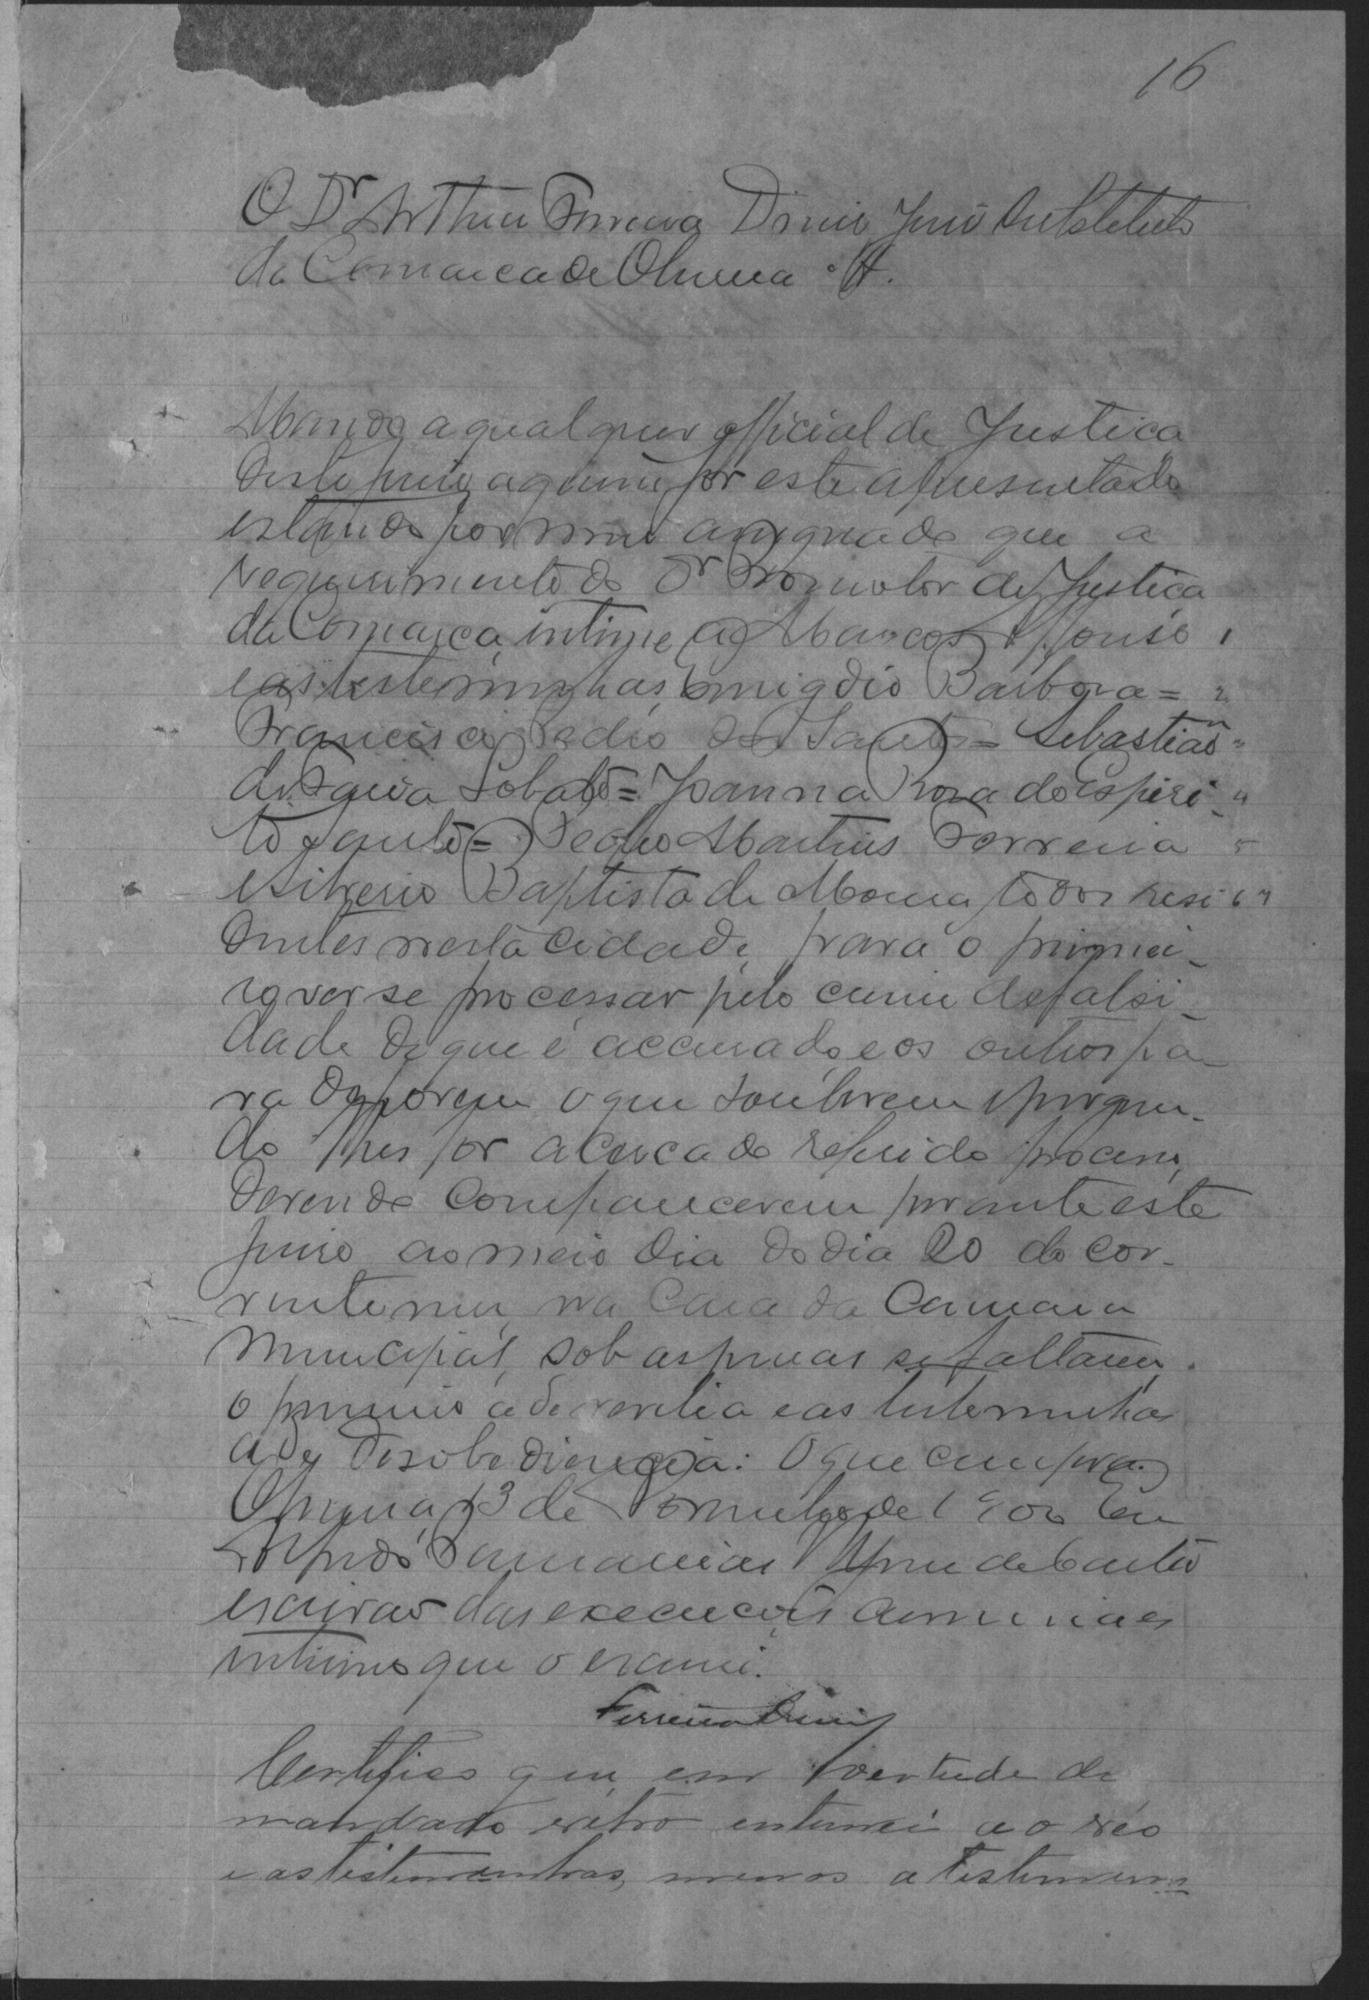 16
O Dr Arthur Ferreira Diniz Juis Substituto
da Comarca de Oliveira &.
Mando a qualquer official de Justica
deste juiso aquem for este apresentado
estando por mim assignado que a
requerimento do Dr Promotor de Justica
da Comarca, intime a Marcos Affonso
e as testemunhas, Emigdio Barbosa =
Francisco Pedro dos Santos = Sebastião
de Paiva Lobato = Joanna Rosa do Espiri-
to Santo = Pedro Martins Ferreira
e Silverio Baptista de Moura, todos resi
dentes nesta cidade, para o primei-
ro ver se processar pelo crime de falsi-
dade de que é accusado, e os outros pa-
ra deporem o que souberem e pergun-
do lhes for acerca do referido processo,
devendo comparecerem perante este
juiso ao meio dia do dia 20 do cor-
rente mes, na Casa da Camara
Municipal, sob as penas se faltarem,
o primeiro a de revelia e as testemunhas
a de desobediencia: O que cumpra.
Oliveira, 13 de de 1900 Eu
de Castro
escrivão das execuções criminaes
interino que o escrevi.
Ferreira Diniz
Certifico que em vertude do
mandado retro entimei ao réo
e as testemunhas, menos a testemun=